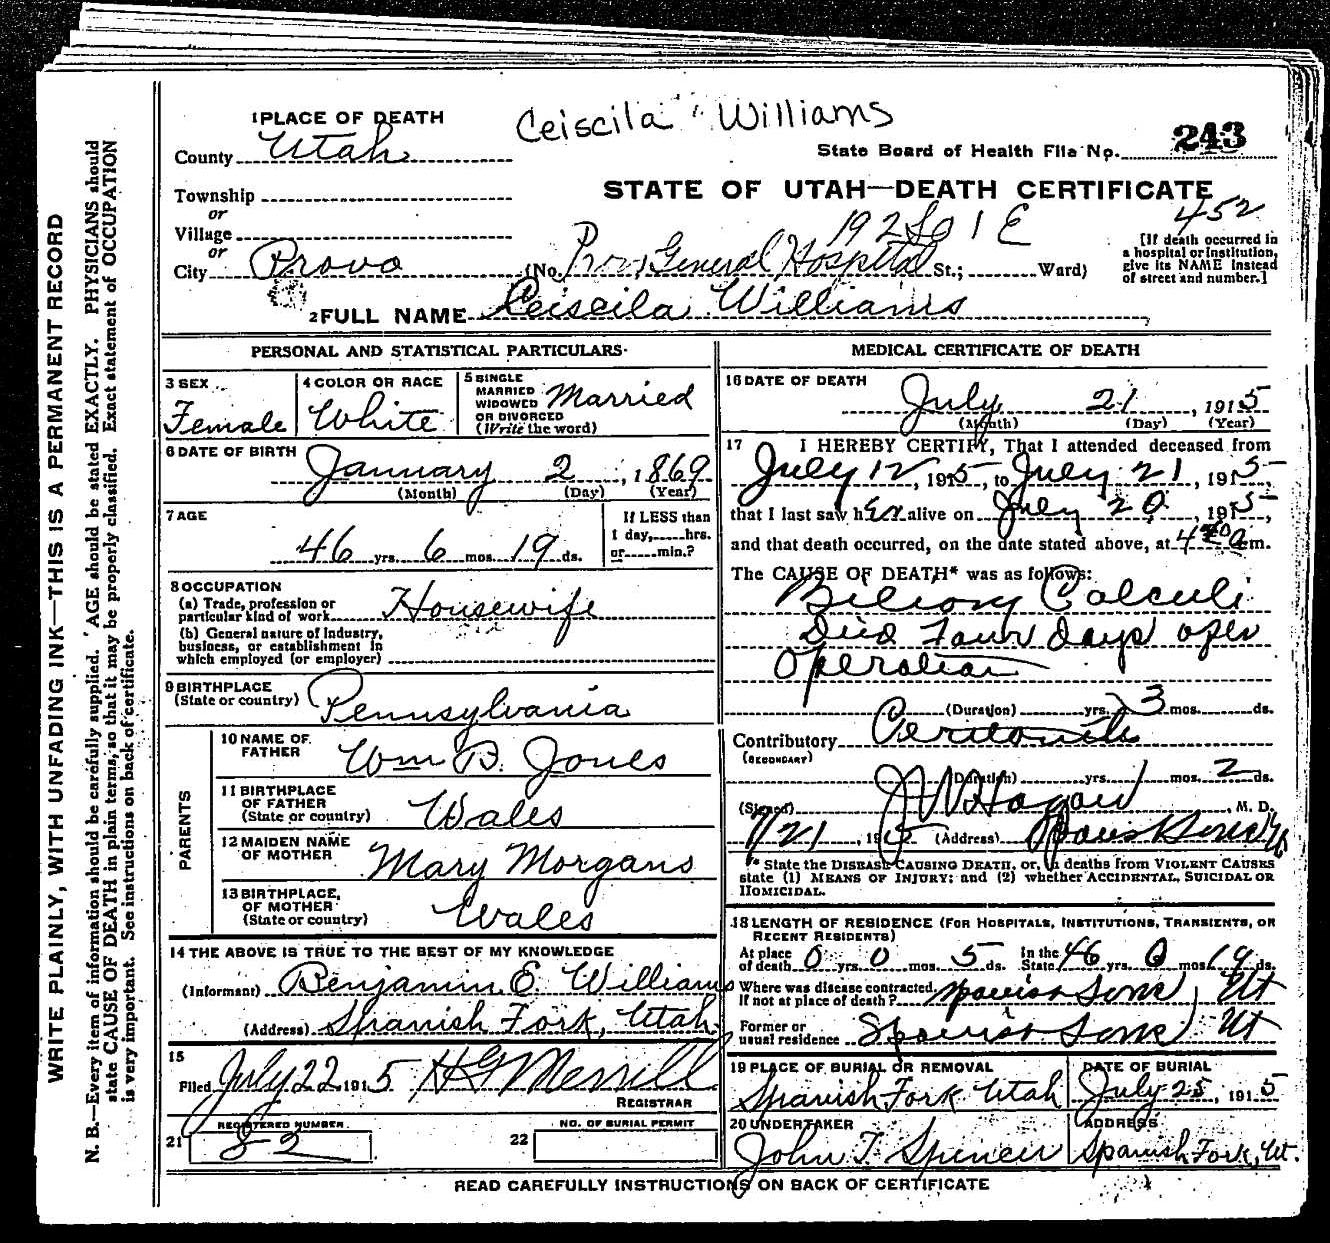 Ceiscila Williams
1 PLACE OF DEATH
County Utah
State Board of Health File No. 243
Township
or
Village
or
City Provo
STATE OF UTAH—DEATH CERTIFICATE
452
192 So 1 E
(No. Prov General Hospital St.; Ward)
[If death occurred in
a hospital or institution,
give its NAME instead
of street and number.]
2 FULL NAME Ceiscila Williams
PERSONAL AND STATISTICAL PARTICULARS
3 SEX
Female
4 COLOR OR RACE
White
5 SINGLE
MARRIED
WIDOWED
OR DIVORCED
(Write the word)
Married
6 DATE OF BIRTH
January 2, 1869
(Month) (Day) (Year)
7 AGE
46 yrs. 6 mos. 19 ds.
If LESS than
1 day,.....hrs.
or.....min.?
8 OCCUPATION
(a) Trade, profession or
particular kind of work Housewife
(b) General nature of industry,
business, or establishment in
which employed (or employer)
9 BIRTHPLACE
(State or country) Pennsylvania
PARENTS
10 NAME OF
FATHER Wm B. Jones
11 BIRTHPLACE
OF FATHER
(State or country) Wales
12 MAIDEN NAME
OF MOTHER Mary Morgans
13 BIRTHPLACE
OF MOTHER
(State or country) Wales
14 THE ABOVE IS TRUE TO THE BEST OF MY KNOWLEDGE
(Informant) Benjamin E. Williams
(Address) Spanish Fork, Utah.
15
Filed July 22 1915 H G Merrill
REGISTRAR
21 REGISTERED NUMBER
82
22 NO. OF BURIAL PERMIT
MEDICAL CERTIFICATE OF DEATH
16 DATE OF DEATH
July 21, 1915
(Month) (Day) (Year)
17 I HEREBY CERTIFY, That I attended deceased from
July 12, 1915, to July 21, 1915
that I last saw her alive on July 20, 1915,
and that death occurred, on the date stated above, at 4 40 am.
The CAUSE OF DEATH* was as follows:
Biliary Calculi
Died Four days after
Operation
(Duration) yrs. 3 mos. ds.
Contributory Peritonitis
(SECONDARY)
(Duration) yrs. mos. 2 ds.
(Signed) J W Hagan, M. D.
7/21, 1915 (Address) Spanish Fork Ut
* State the DISEASE CAUSING DEATH, or, in deaths from VIOLENT CAUSES
state (1) MEANS OF INJURY; and (2) whether ACCIDENTAL, SUICIDAL OR
HOMICIDAL.
18 LENGTH OF RESIDENCE (FOR HOSPITALS, INSTITUTIONS, TRANSIENTS, OR
RECENT RESIDENTS)
At place
of death 0 yrs. 0 mos. 5 ds. In the
State 46 yrs. 6 mos. 19 ds.
Where was disease contracted.
If not at place of death? Spanish Fork, Ut
Former or
usual residence Spanish Fork, Ut
19 PLACE OF BURIAL OR REMOVAL
Spanish Fork Utah
DATE OF BURIAL
July 25, 1915
20 UNDERTAKER
John T. Spencer
ADDRESS
Spanish Fork, Ut.
READ CAREFULLY INSTRUCTIONS ON BACK OF CERTIFICATE
WRITE PLAINLY, WITH UNFADING INK—THIS IS A PERMANENT RECORD
N. B.—Every item of information should be carefully supplied. AGE should be stated EXACTLY. PHYSICIANS should
state CAUSE OF DEATH in plain terms, so that it may be properly classified. Exact statement of OCCUPATION
is very important. See instructions on back of certificate.